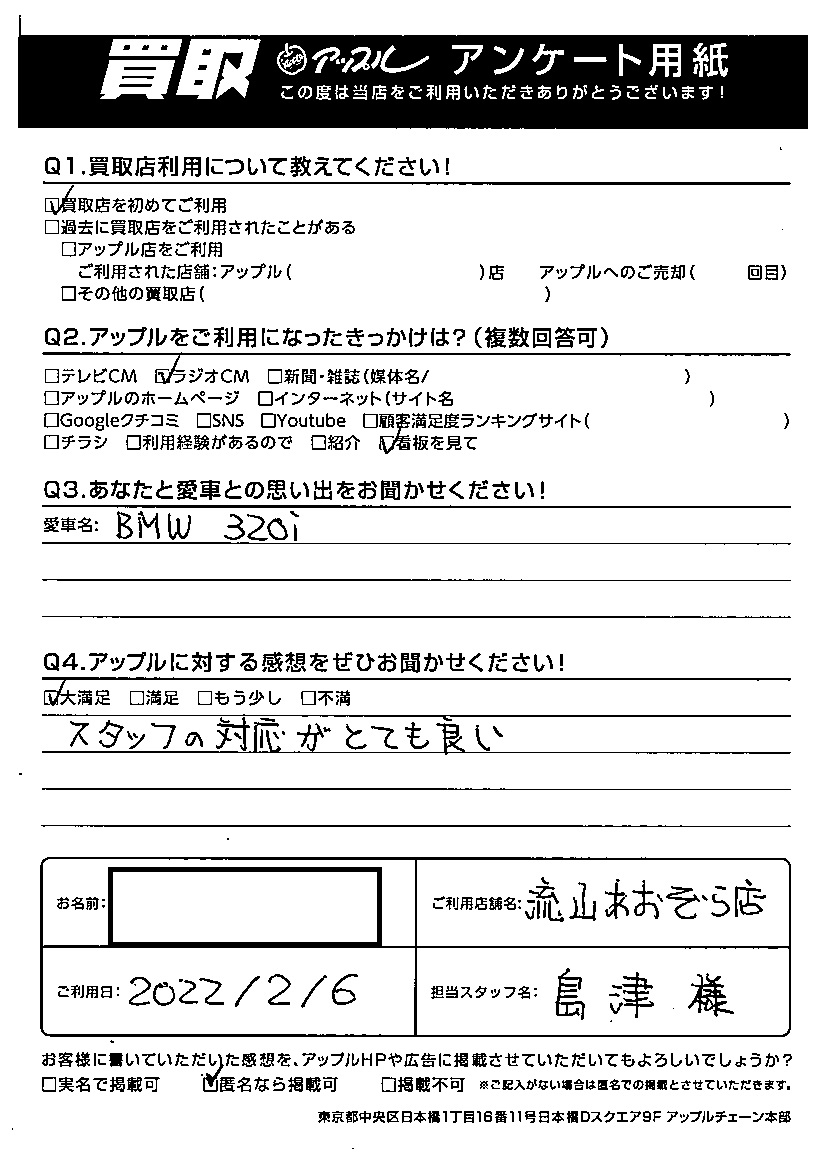 買取 アップル アンケート用紙
この度は当店をご利用いただきありがとうございます!
Q1.買取店利用について教えてください!
☑買取店を初めてご利用
□過去に買取店をご利用されたことがある
□アップル店をご利用
ご利用された店舗:アップル( )店 アップルへのご売却( 回目)
□その他の買取店( )
Q2.アップルをご利用になったきっかけは?(複数回答可)
□テレビCM ☑ラジオCM □新聞・雑誌(媒体名/ )
□アップルのホームページ □インターネット(サイト名 )
□Googleクチコミ □SNS □Youtube □顧客満足度ランキングサイト( )
□チラシ □利用経験があるので □紹介 ☑看板を見て
Q3.あなたと愛車との思い出をお聞かせください!
愛車名: BMW 320i
Q4.アップルに対する感想をぜひお聞かせください!
☑大満足 □満足 □もう少し □不満
スタッフの対応がとても良い
お名前:
ご利用店舗名:流山おおぞら店
ご利用日:2022/2/6
担当スタッフ名:島津 様
お客様に書いていただいた感想を、アップルHPや広告に掲載させていただいてもよろしいでしょうか?
□実名で掲載可 ☑匿名なら掲載可 □掲載不可 ※ご記入がない場合は匿名での掲載とさせていただきます。
東京都中央区日本橋1丁目16番11号日本橋Dスクエア9F アップルチェーン本部